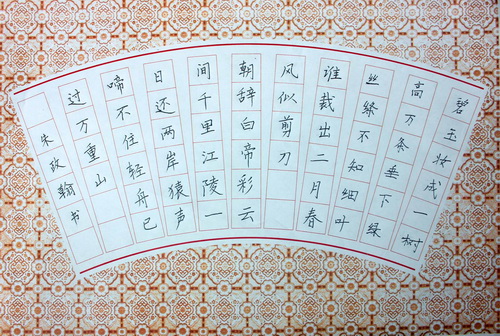 碧玉妆成一树
高万条垂下绿
丝绦不知细叶
谁裁出二月春
风似剪刀
朝辞白帝彩云
间千里江陵一
日还两岸猿声
啼不住轻舟已
过万重山
朱翰书